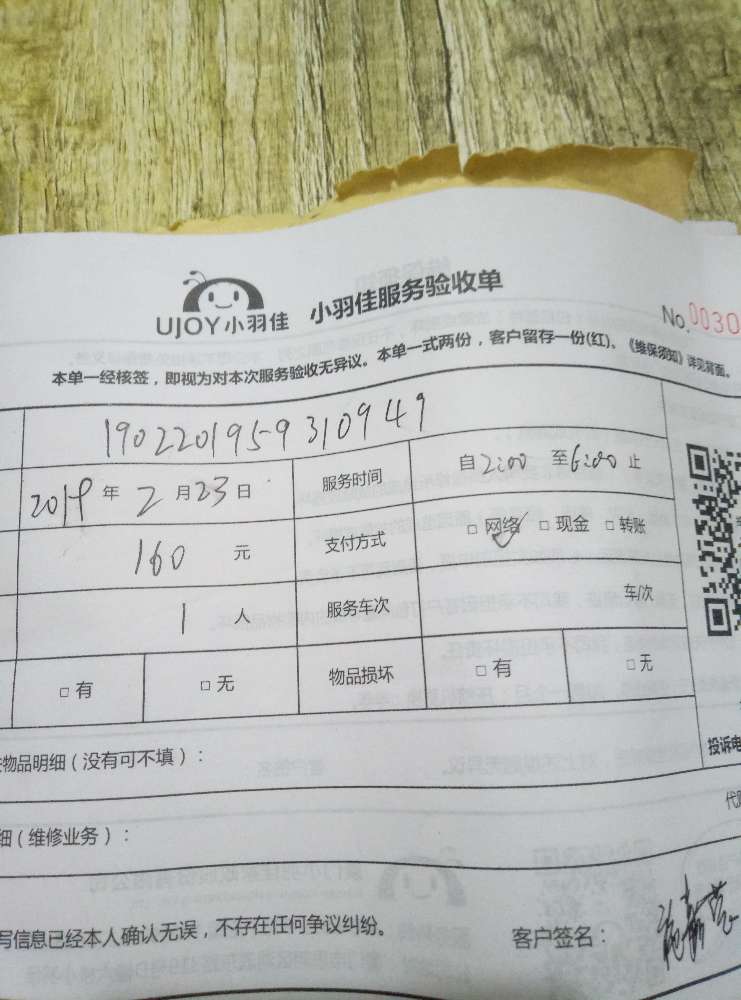 UJOY小羽佳 小羽佳服务验收单
No.0030
本单一经核签，即视为对本次服务验收无异议。本单一式两份，客户留存一份(红)、《维保须知》详见背面。
1902201959310949
2019年2月23日 服务时间 自2:00至6:00止
160元 支付方式 □网络 □现金 □转账
1人 服务车次 车/次
□有 □无 物品损坏 □有 □无
物品明细（没有可不填）：
投诉电
代
细（维修业务）：
写信息已经本人确认无误，不存在任何争议纠纷。 客户签名：